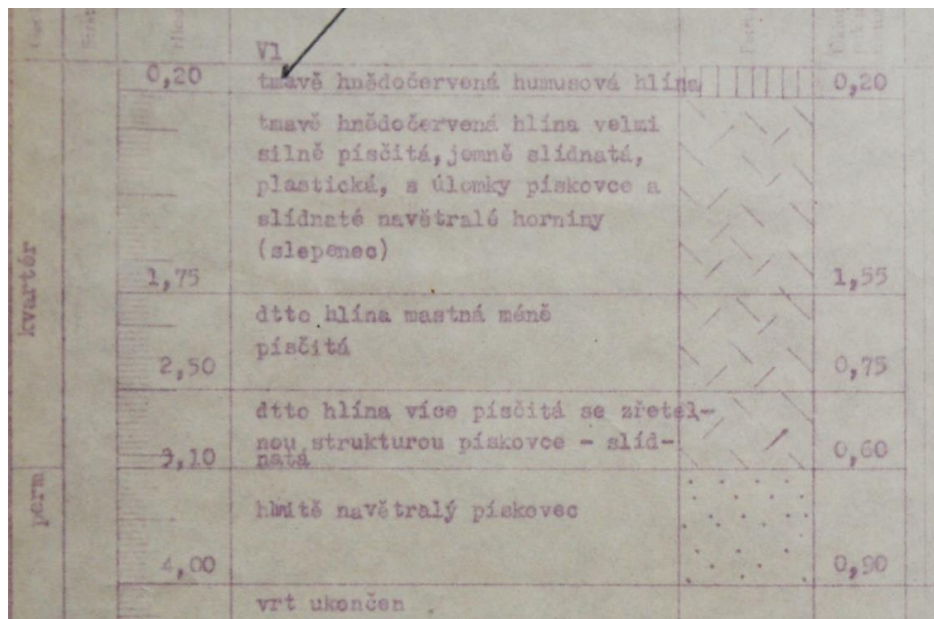 V1
0,20 tmavě hnědočervená humusová hlína 0,20
tmavě hnědočervená hlína velmi
silně písčitá, jemně slídnatá,
plastická, s úlomky pískovce a
slídnaté navětralé horniny
(slepenec)
1,75 1,55
dtto hlína mastná méně
písčitá
2,50 0,75
dtto hlína více písčitá se zřetel-
nou strukturou pískovce - slíd-
natá
3,10 0,60
hmitě navětralý pískovec
4,00 0,90
vrt ukončen
kvartér
perm